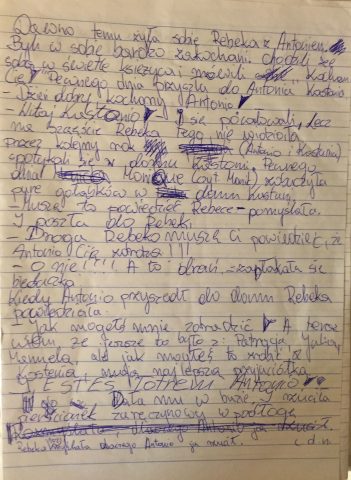 Dawno temu żyła sobie Rebeka z Antoniem.
Byli w sobie bardzo zakochani. Chodzili ze
sobą w świetle księżyca i mówili "Kocham
Cię". Pewnego dnia przyszła do Antonia Kostania
- Dzień dobry kochany Antonio
- Witaj Kostanio! - I się pocałowali, lecz
na szczęście Rebeka tego nie widziała
przez kolejny rok (Antonio i Kostania)
spotykali się w domu Kostani. Pewnego
dnia Monique (czyt Monik) zobaczyła
parę gołąbków w domu Kostani.
! Muszę to powiedzieć Rebece - pomyślała.
I poszła do Rebeki
- Droga Rebeko muszę Ci powiedzieć, że
Antonio Cię zdradza!!!
- O nie!!!! A to drań - zapłakała się
biedaczka
Kiedy Antonio przyszedł do domu Rebeka
powiedziała.
- Jak mogłeś mnie zdradzić! A teraz
wiem że jeszcze to było z: Patrycja, Julią,
ale jak mogłeś to zrobić z
Kostenią, moją najlepszą przyjaciółką
JESTEŚ Łotrem Antonio
Dała mu w buzię, rzuciła
pierścionek zaręczynowy w podłogę
Rebeka dlaczego Antonio ją rzucił. c.d.n.